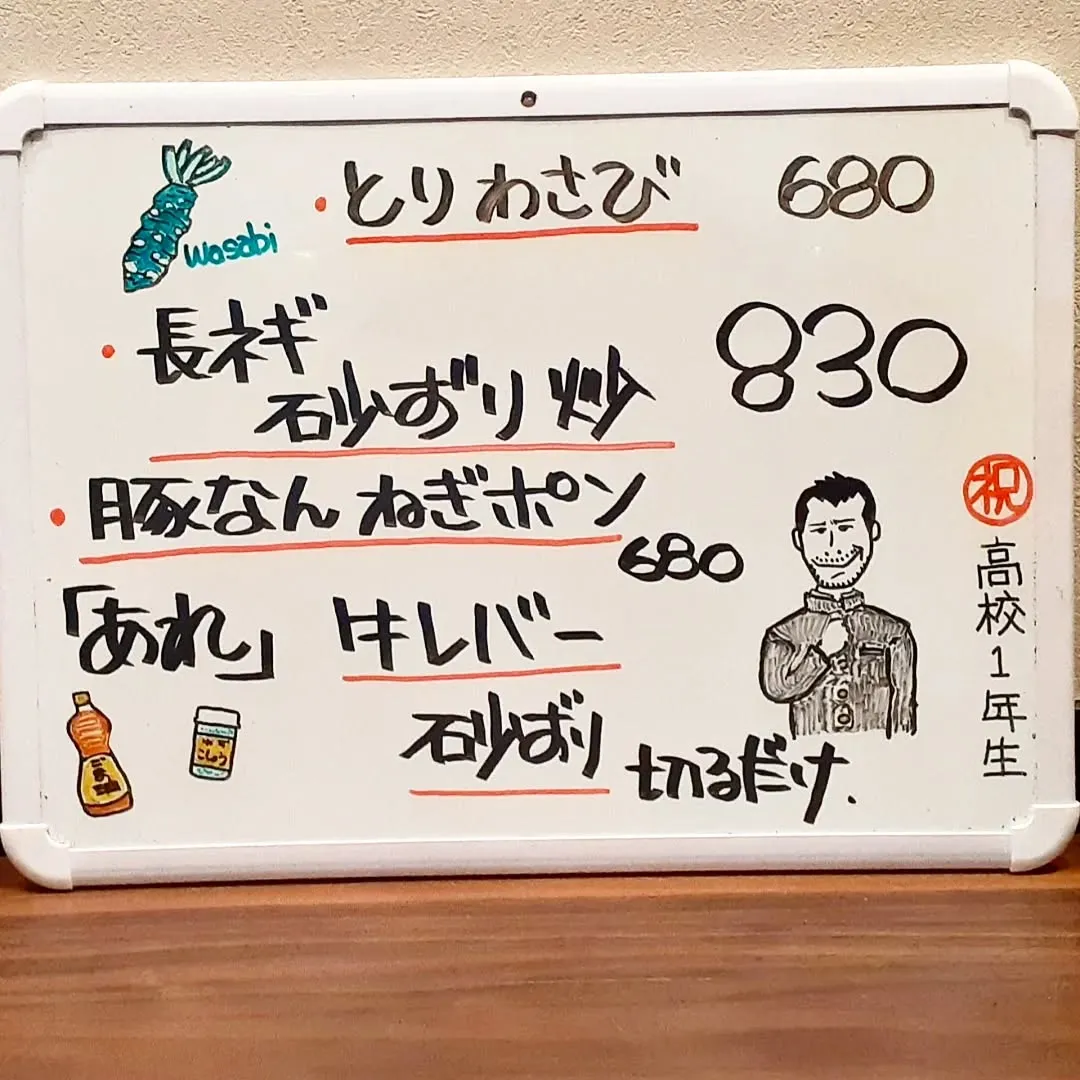 ・とりわさび 680
wasabi
・長ネギ
砂ずり炒 830
・豚なんねぎポン
680
「あれ」 牛レバー
砂ずり 切るだけ.
ごま油
ゆず
こしょう
祝
高校1年生